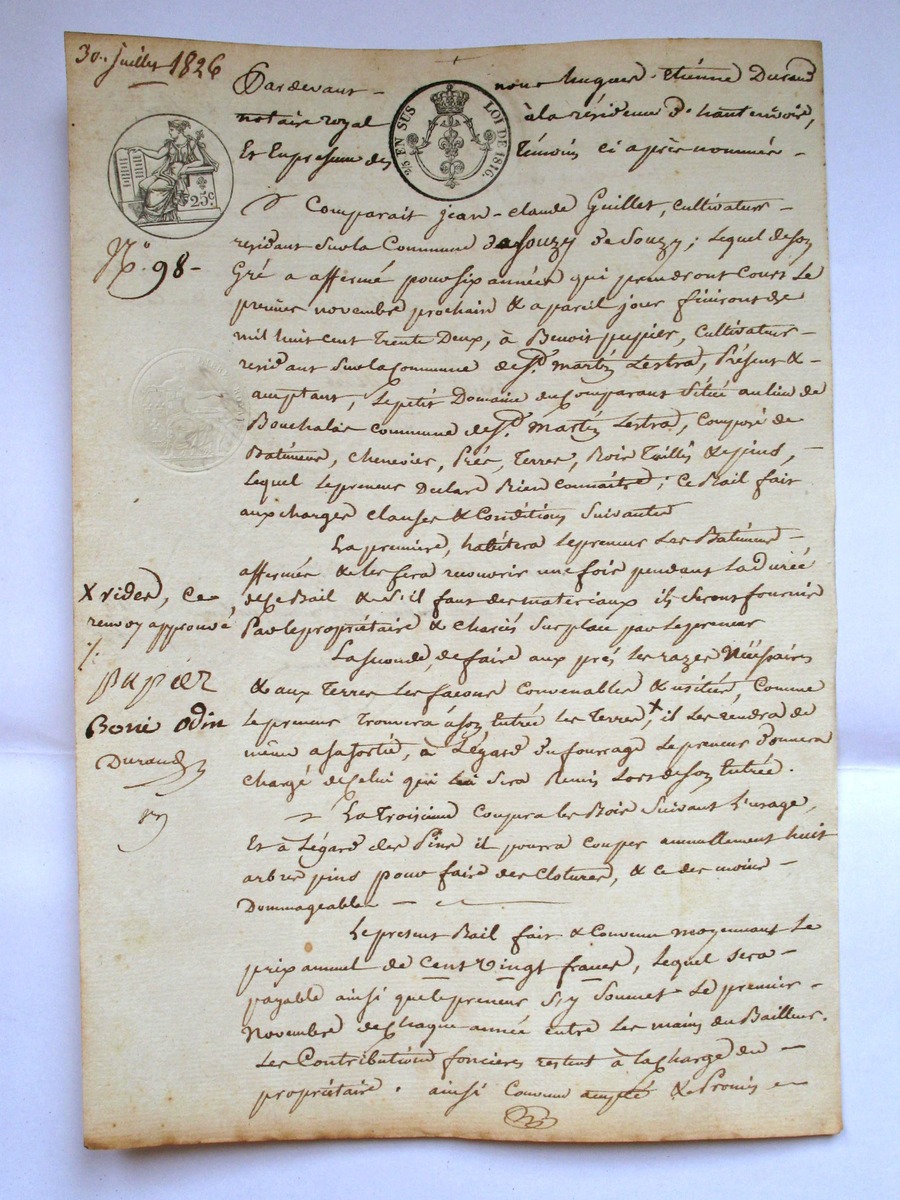 30. juillet 1826
Pardevant - nous hugues-étienne Durand
notaire royal à la résidence d'hauterivoire,
Et En presence des témoins ci après nommés -
2/5 EN SUS LOI DE 1816.
25c.
N° 98-
Comparait jean-claude Guillet, cultivateur -
residant sur la Commune de Souzy; lequel de son
Gré a affermé pour six années qui prendront Cours le
premier novembre prochain & a pareil jour finiront de
mil huit cent trente Deux, à Benoit pupier, cultivateur -
residant sur la commune de St. martin Lestra, Présent & -
acceptant, Le petit Domaine du Comparant Situé au lieu de
commune de St. martin Lestra, Composé de
Batiment, chenevier, Prés, terres, Bois taillis & de pins, -
lequel le preneur Declare Bien connaitre; ce Bail fait
aux charges clauses & Conditions Suivantes
La premiere, habitera le preneur Les Batiments -
affermés & les fera recouvrir une fois pendant la durée
de ce Bail & s'il faut des materiaux ils seront fournis
Par le propriétaire & chariés sur place par le preneur
La seconde, de faire aux prés les razes Nécessaires
& aux terres les facons convenables & usitées, comme
le preneur trouvera à son Entrée les terres, x il les rendra de
même a sa sortie, à L'égard du fourrage le preneur Donnera
chargé de celui qui lui sera Remis Lors de son Entrée.
x vides, ce
renvoy approuvé
./.
pupier
Boné Odin
Durand
La troisieme coupera les Bois Suivant L'usage,
Et à L'égard des Pins il pourra couper annuellement huit
arbres pins pour faire des Clotures, & ce des moins -
Dommageables -
Le present Bail fait & Convenu moyennant Le
prix annuel de Cent vingt francs, lequel sera -
payable ainsi que le preneur s'y Soumet Le premier -
Novembre de chaque année entre les mains du Bailleur.
Les Contributions foncieres restent à la charge du -
propriétaire. ainsi Convenu accepté & Promis